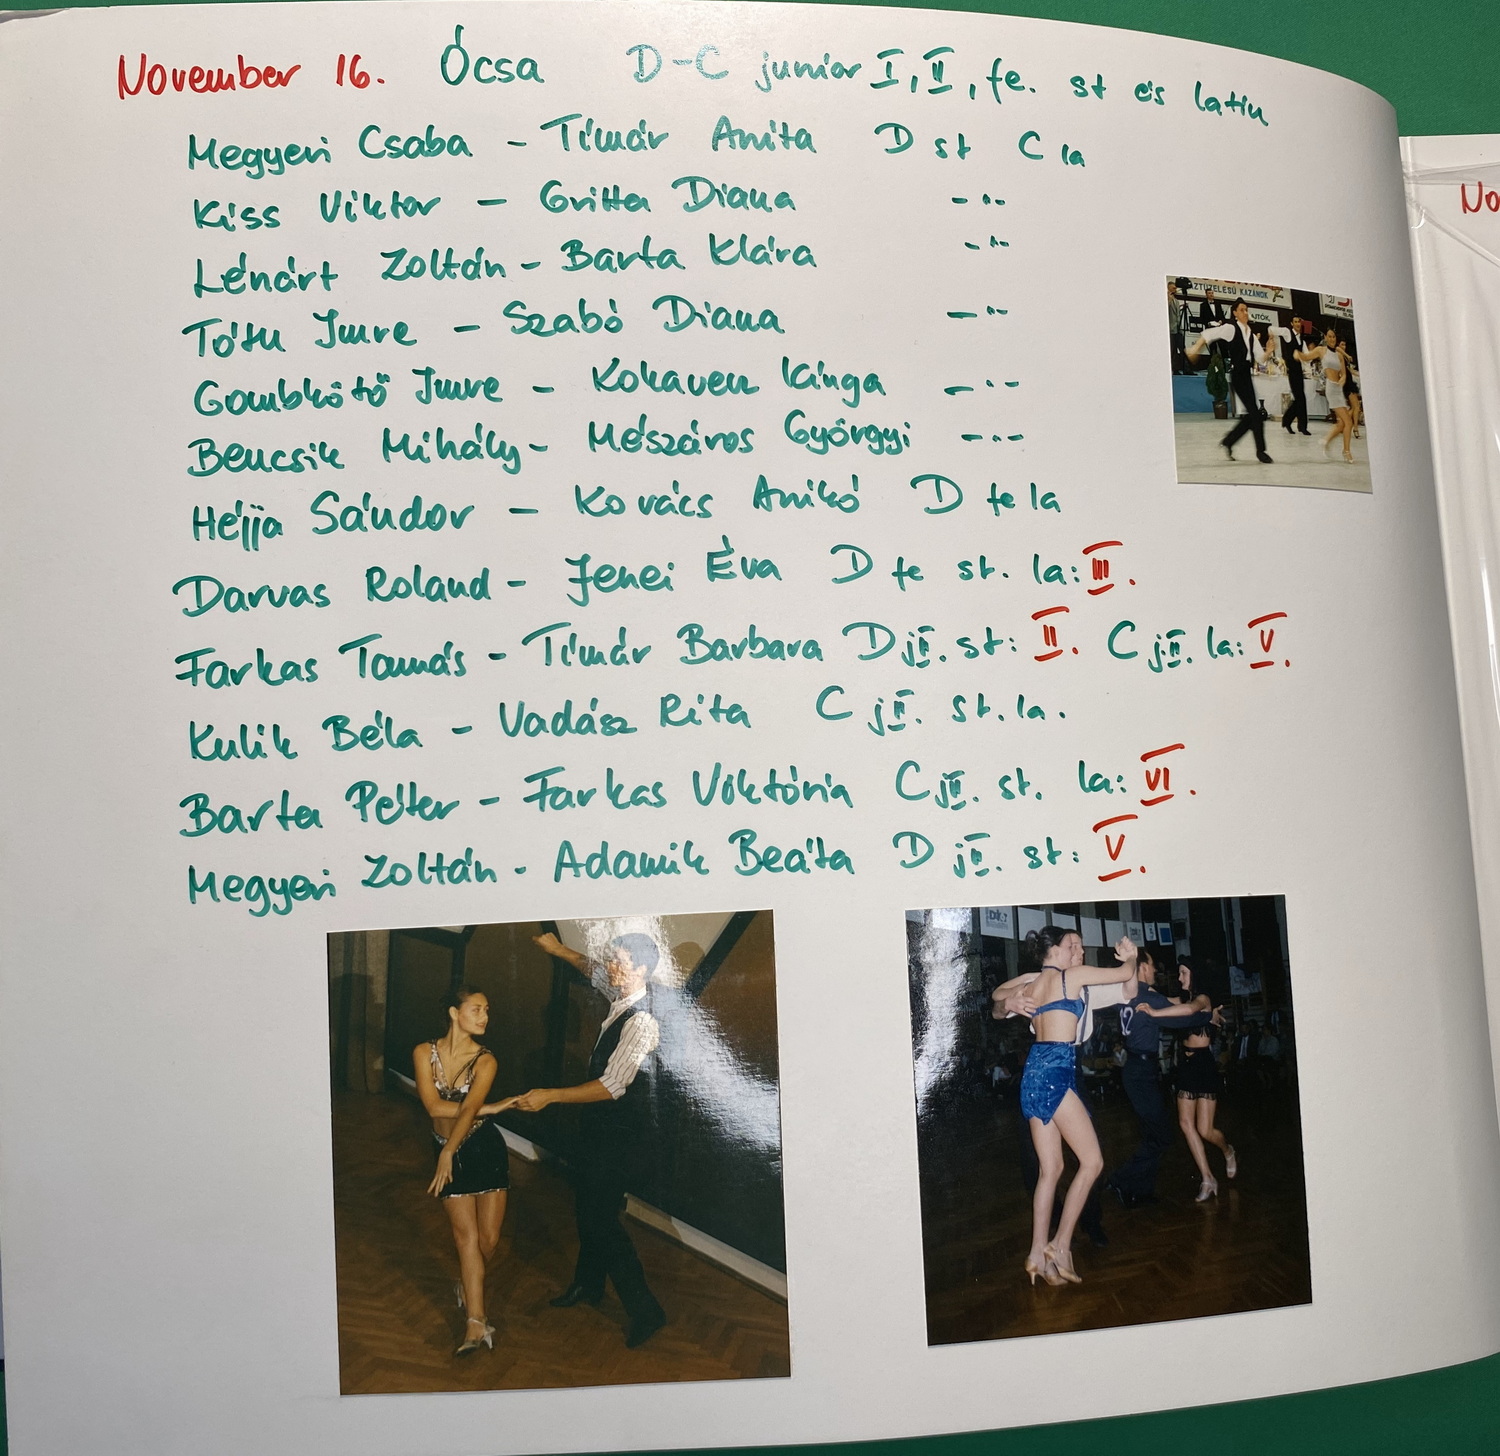 November 16. Ócsa D-C junior I, II, fe. st és latin
Megyeri Csaba - Tímár Anita D st C la
Kiss Viktor - Gritta Diana -"-
Lénárt Zoltán - Barta Klára -"-
Tóth Imre - Szabó Diana -"-
Gombkötő Imre - Kohaven Kinga -"-
Bencsik Mihály - Mészáros Györgyi -"-
Héjja Sándor - Kovács Anikó D fe la
Darvas Roland - Jenei Éva D fe st. la: III.
Farkas Tamás - Tímár Barbara D jII. st: II. C jII. la: V.
Kulik Béla - Vadász Rita C jII. st. la.
Barta Péter - Farkas Viktória C jII. st. la: VI.
Megyeri Zoltán - Adamik Beáta D jII. st: V.
No
ÁZTÜZELÉSŰ KAZÁNOK
12